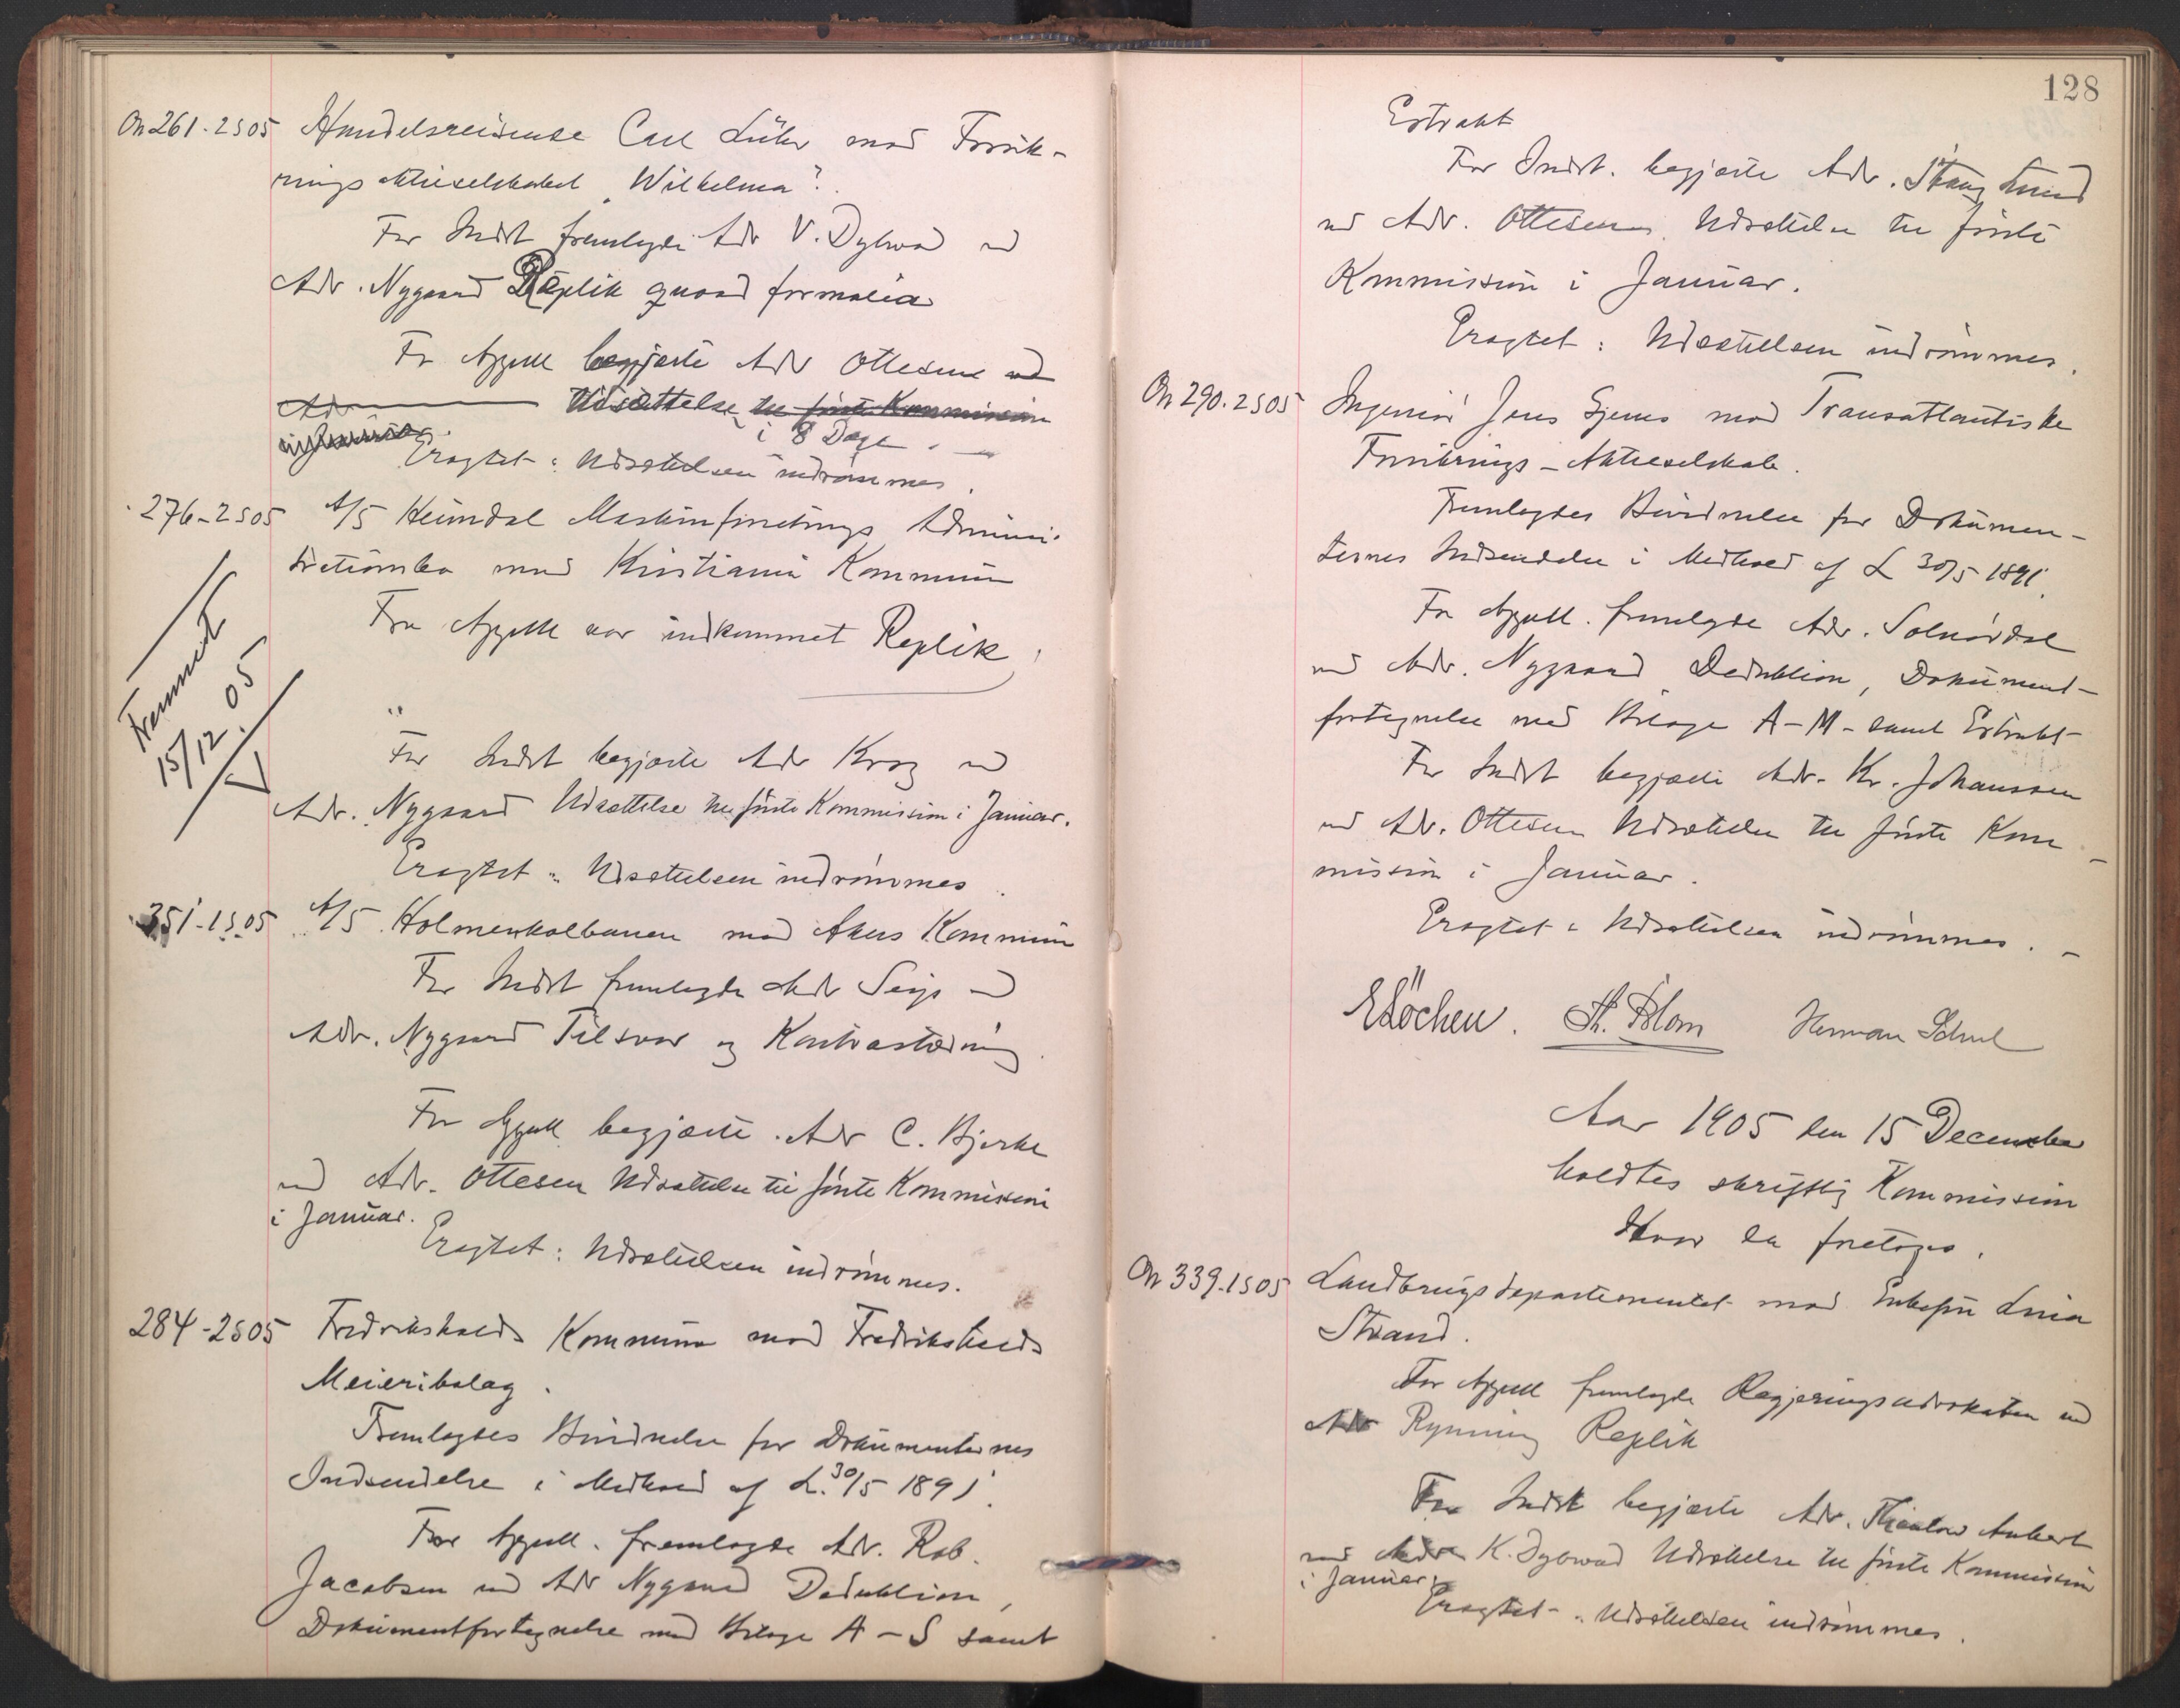 On 261-2 S 05 Handelsreisende Carl Lühr mod Forsik-
ringsaktieselskabet "Wilhelma".
For Indst fremlagde Adv V. Dybwad ved
Adv. Nygaard Replik quoad formalia
For Appell begjærte Adv Ottesen ved
Adv Udsættelse til første Kommission
i 8 Dage.
Eragtet: Udsættelsen indrømmes.
276-2 S 05 A/S Heimdal Maskinforretnings Admini-
strationsbo mod Kristiania Kommune
Fra Appell var indkommet Replik
Fremmet
15/12 05
For Indst begjærte Adv Krog ved
Adv. Nygaard Udsættelse til første Kommission i Januar.
Eragtet: Udsættelsen indrømmes.
351-1 S 05 A/S Holmenkolbanen mod Akers Kommune
For Indst fremlagde Adv Seip ved
Adv. Nygaard Tilsvar og Kontrastævning
For Appell begjærte Adv C. Bjerke
ved Adv. Ottesen Udsættelse til første Kommission
i Januar.
Eragtet: Udsættelsen indrømmes.
284-2 S 05 Fredrikshalds Kommune mod Fredrikshalds
Meieribolag.
Fremlagdes Bevidnelse for Dokumenternes
Indsendelse i Medhold af L. 30/5 1891.
For Appell. fremlagde Adv. Rob.
Jacobsen ved Adv Nygaard Deduktion,
Dokumentfortegnelse med Bilage A-S samt
128
Extrakt
For Indst. begjærte Adv. Stang Lund
ved Adv. Ottesen Udsættelse til første
Kommission i Januar.
Eragtet: Udsættelsen indrømmes.
On 290-2 S 05 Ingeniør Jens Gjems mod Transatlantiske
Forsikrings-Aktieselskab.
Fremlagdes Bevidnelse for Dokumen-
ternes Indsendelse i Medhold af L 30/5 1891.
For Appell. fremlagde Adv. Solnørdal
ved Adv. Nygaard Deduktion, Dokument-
fortegnelse med Bilage A-M samt Extrakt
For Indst begjærte Adv. Kr. Johanssen
ved Adv. Ottesen Udsættelse til første Kom-
mission i Januar.
Eragtet: Udsættelsen indrømmes.
E Løchen. Th. Blom Herman Scheel
Aar 1905 den 15 December
holdtes skriftlig Kommission
Hvor da foretoges.
On 339-1 S 05 Landbrugsdepartementet mod Enkefru Lina
Strand.
For Appell fremlagde Regjeringsadvokaten ved
Adv Rynning Replik
For Indst begjærte Adv. Thaulow Aubert
ved Adv K. Dybwad Udsættelse til første Kommission
i Januar.
Eragtet: Udsættelsen indrømmes.